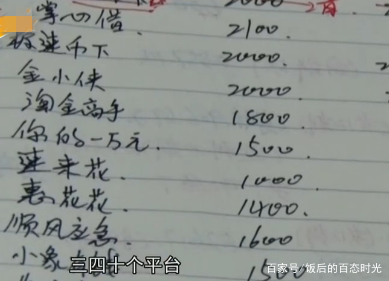 掌心借. 2100.
极速下 2000.
金小侠 2000
淘金高手 1800
你的一万元. 1500.
速来花. 1000
惠花花. 1400.
顺风应急. 1600
小象 1500
三四十个平台
百家号/饭后的百态时光